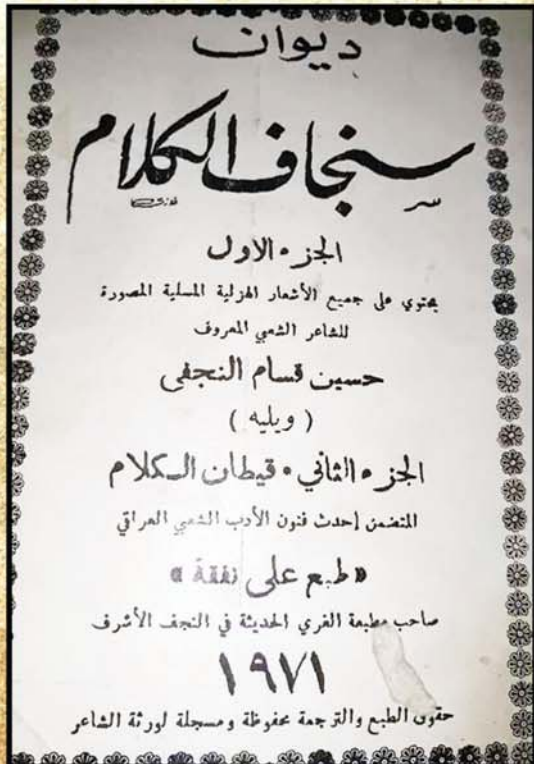 ديوان
سنجاف الكلام
الجزء الاول
يحتوي على جميع الأشعار الهزلية المسلية المصورة
للشاعر الشعبي المعروف
حسين قسام النجفي
( ويليه )
الجزء الثاني • قيطان الكلام
المتضمن إحدث فنون الأدب الشعبي العراقي
« طبع على نفقة »
صاحب مطبعة الغري الحديثة في النجف الأشرف
١٩٧١
حقوق الطبع والترجمة محفوظة ومسجلة لورثة الشاعر